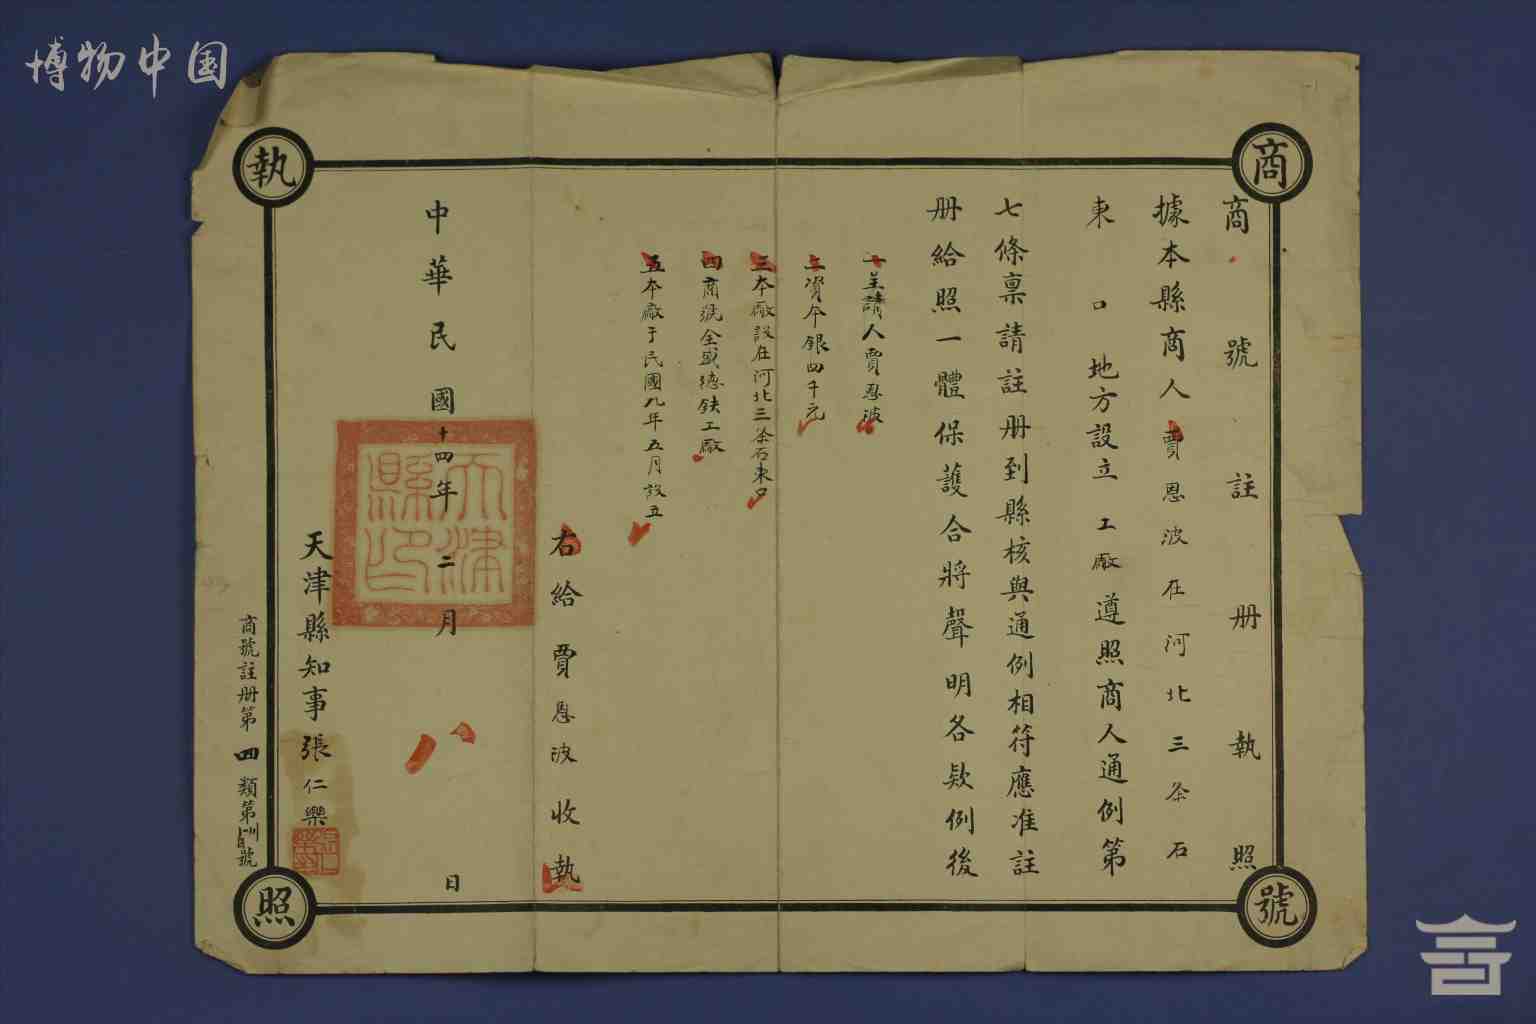 博物中国
商號執照
商號註册執照
據本縣商人賈恩波在河北三条石
東口地方設立工廠遵照商人通例第
七條禀請註册到縣核與通例相符應准註
册給照一體保護合將聲明各欵例後
一呈請人賈恩波
二資本銀四千元
三本廠設在河北三条石東口
四商號全盛德鉄工廠
五本廠于民國九年五月設立
右給賈恩波收執
中華民國十四年二月八日
天津縣印
天津縣知事張仁樂
商號註册第四類第號